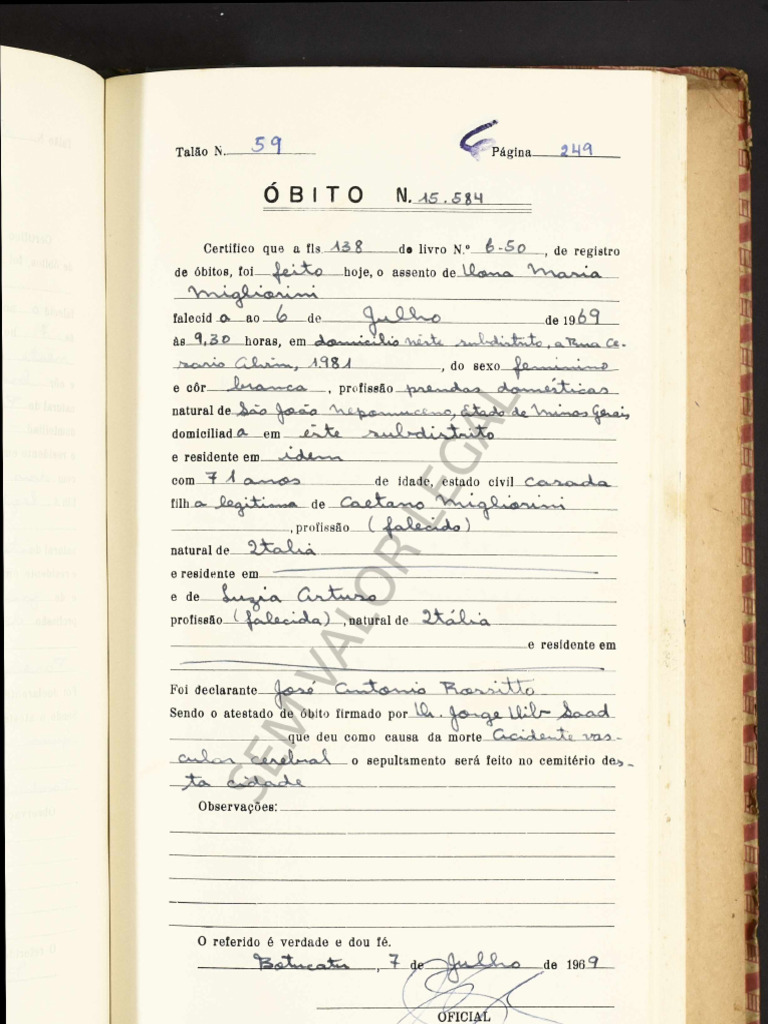 Talão N. 59 Página 249
ÓBITO N. 15.584
Certifico que a fls 138 do livro N.º 6-50, de registro
de óbitos, foi feito hoje, o assento de Maria
Migliorini
falecid a ao 6 de Julho de 1969
às 9,30 horas, em domicílio nêste subdistrito, a Rua Ce-
sario Alvim, 1981, do sexo feminino
e côr branca, profissão prendas domésticas
natural de São João Nepomuceno, Estado de Minas Gerais
domiciliad a em êste subdistrito
e residente em idem
com 71 anos de idade, estado civil casada
filh a legitima de Caetano Migliorini
, profissão (falecido)
natural de Italia
e residente em
e de Luzia Arturo
profissão (falecida), natural de Itália
e residente em
Foi declarante José Antonio Rossitto
Sendo o atestado de óbito firmado por Dr. Jorge Saad
que deu como causa da morte Acidente vas-
cular cerebral o sepultamento será feito no cemitério des-
ta cidade
Observações:
O referido é verdade e dou fé.
Botucatu, 7 de Julho de 1969
OFICIAL
SEM VALOR LEGAL